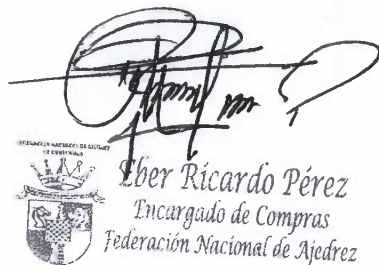 FEDERACION NACIONAL DE AJEDREZ
DE GUATEMALA
Eber Ricardo Pérez
Encargado de Compras
Federación Nacional de Ajedrez